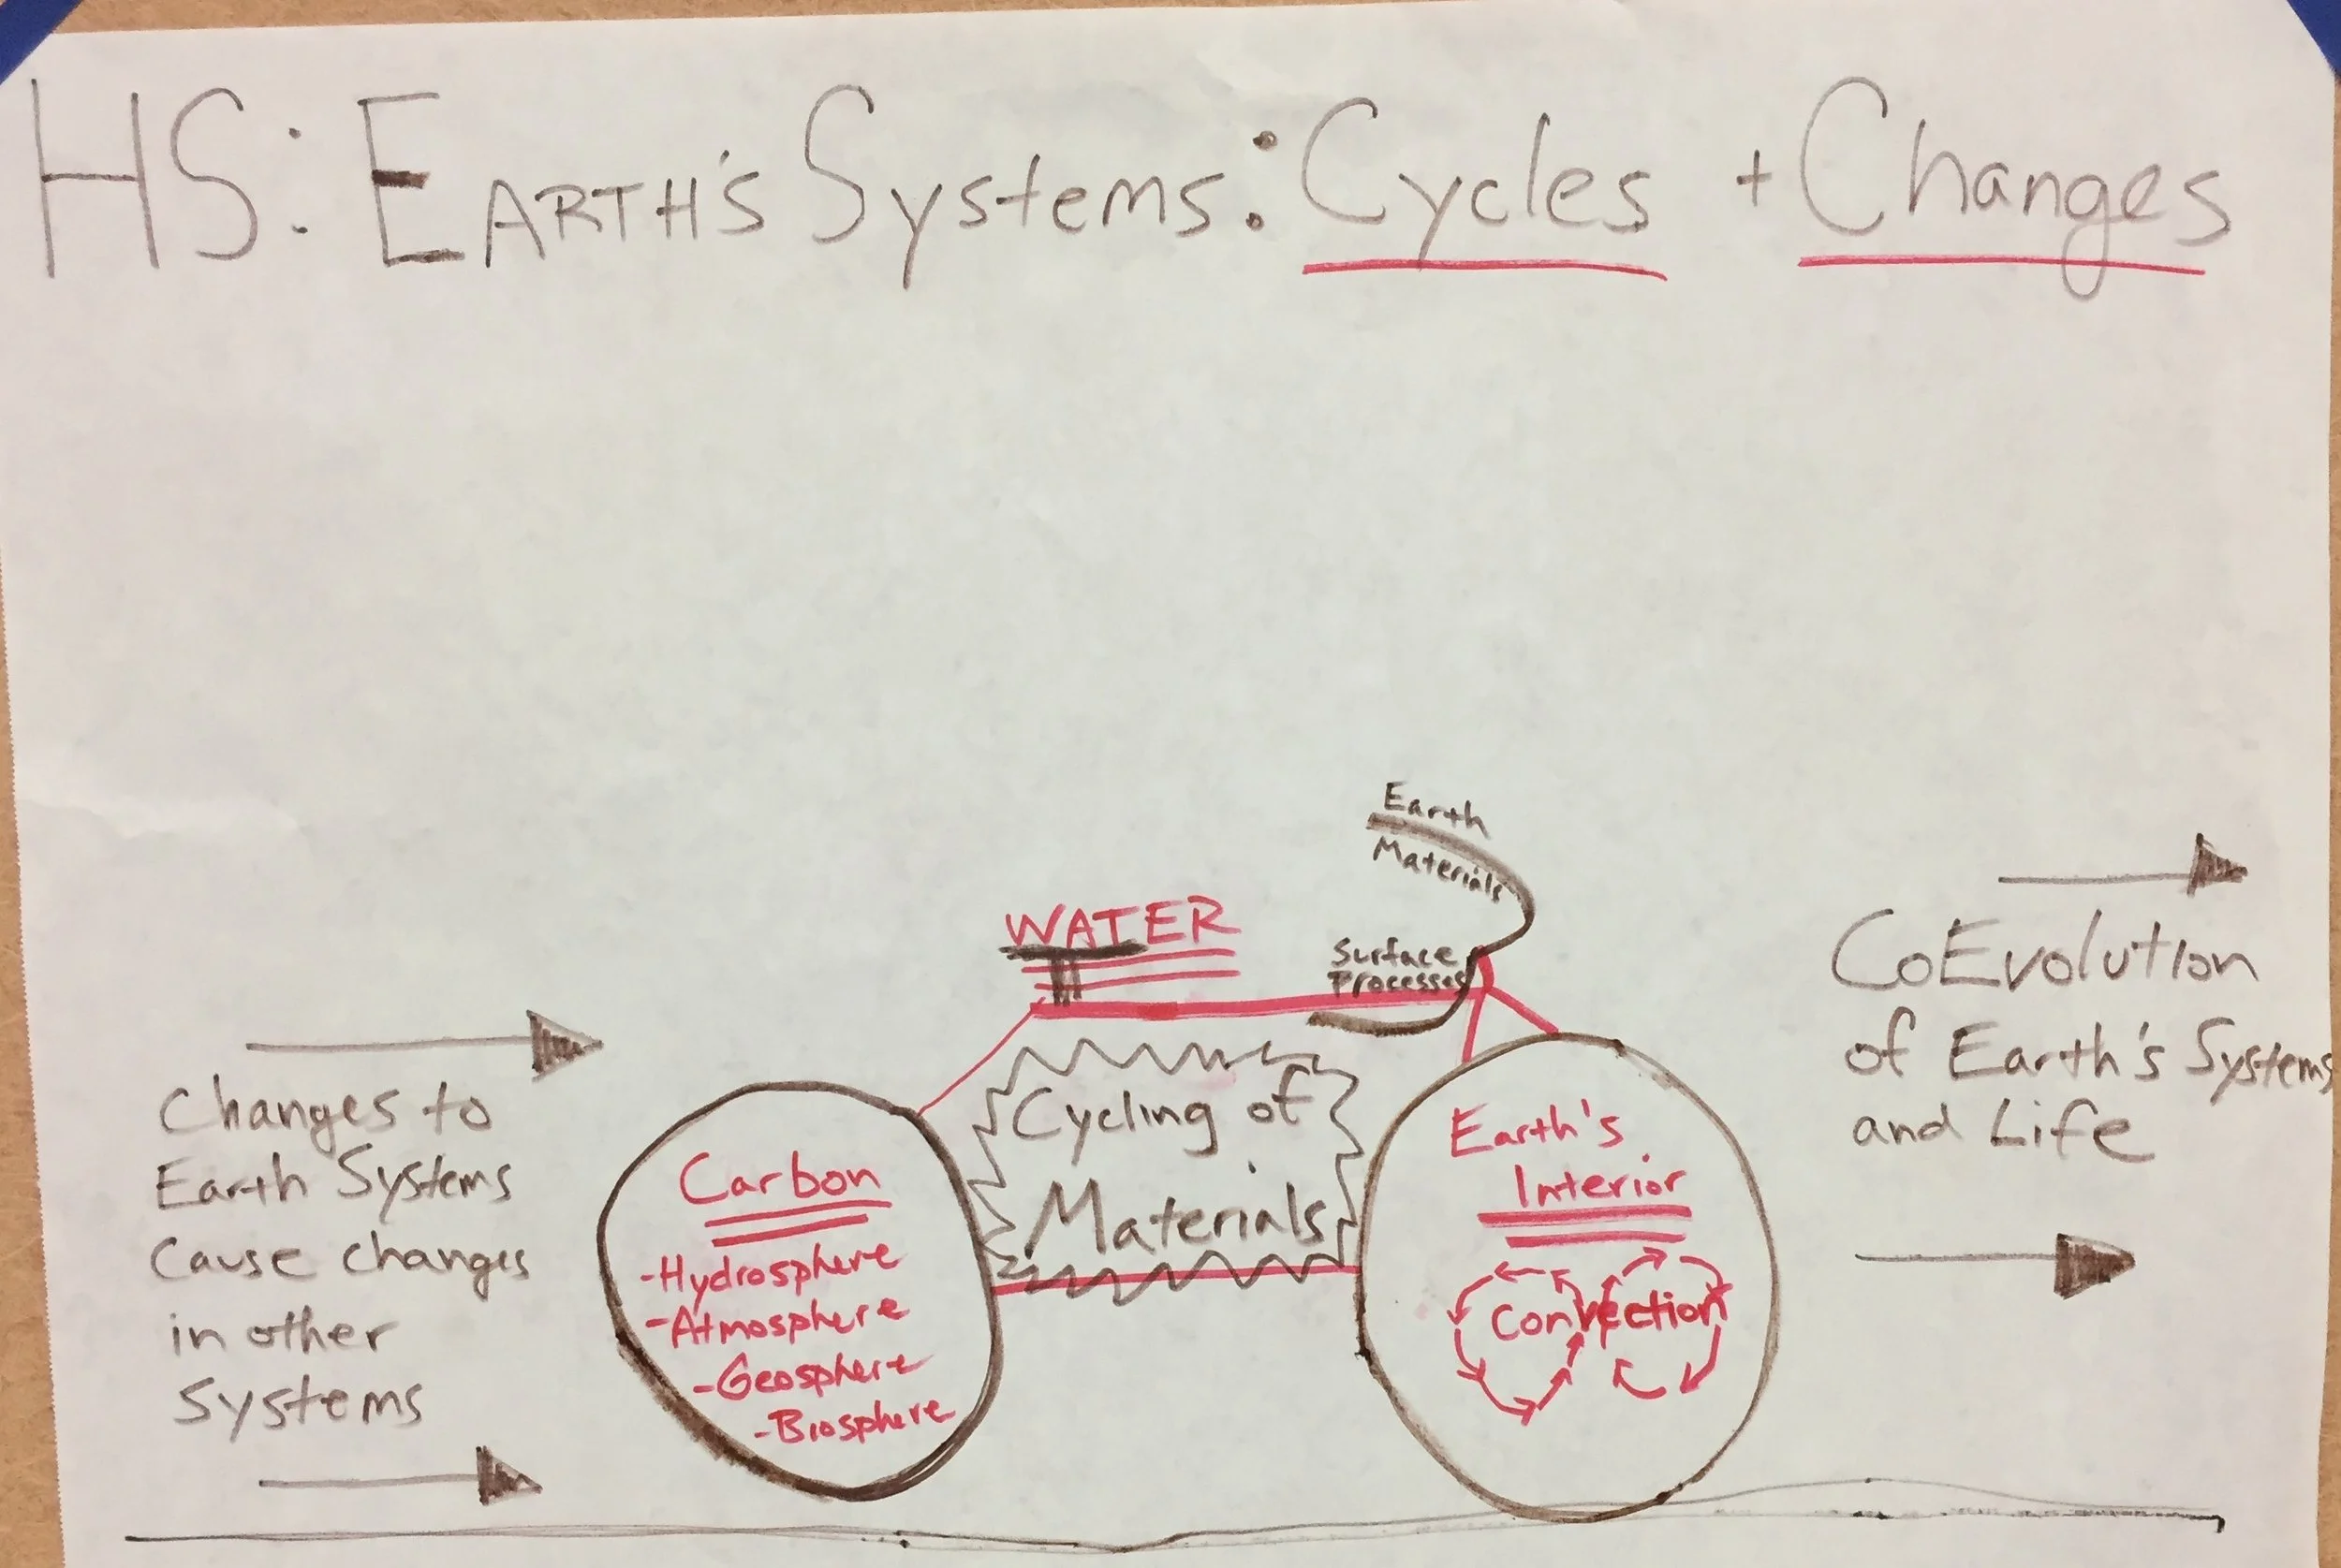 HS: EARTH'S Systems: Cycles + Changes
Earth
Materials
WATER
Surface
Processes
Changes to
Earth Systems
Cause changes
in other
Systems
Carbon
-Hydrosphere
-Atmosphere
-Geosphere
-Biosphere
Cycling of
Materials
Earth's
Interior
Convection
CoEvolution
of Earth's Systems
and Life